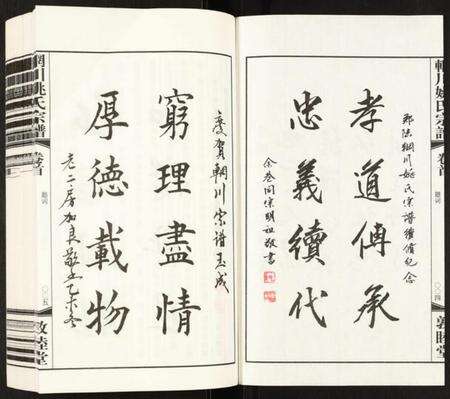 輞川姚氏宗譜
卷首
題詞
〇〇四
敦睦堂
輞川姚氏宗譜續修紀念
孝道傳承
忠義續代
同宗明祖敬書
輞川姚氏宗譜
卷首
題詞
〇〇五
敦睦堂
慶賀輞川宗譜喜成
窮理盡情
厚德載物
老二房加良敬書乙未冬